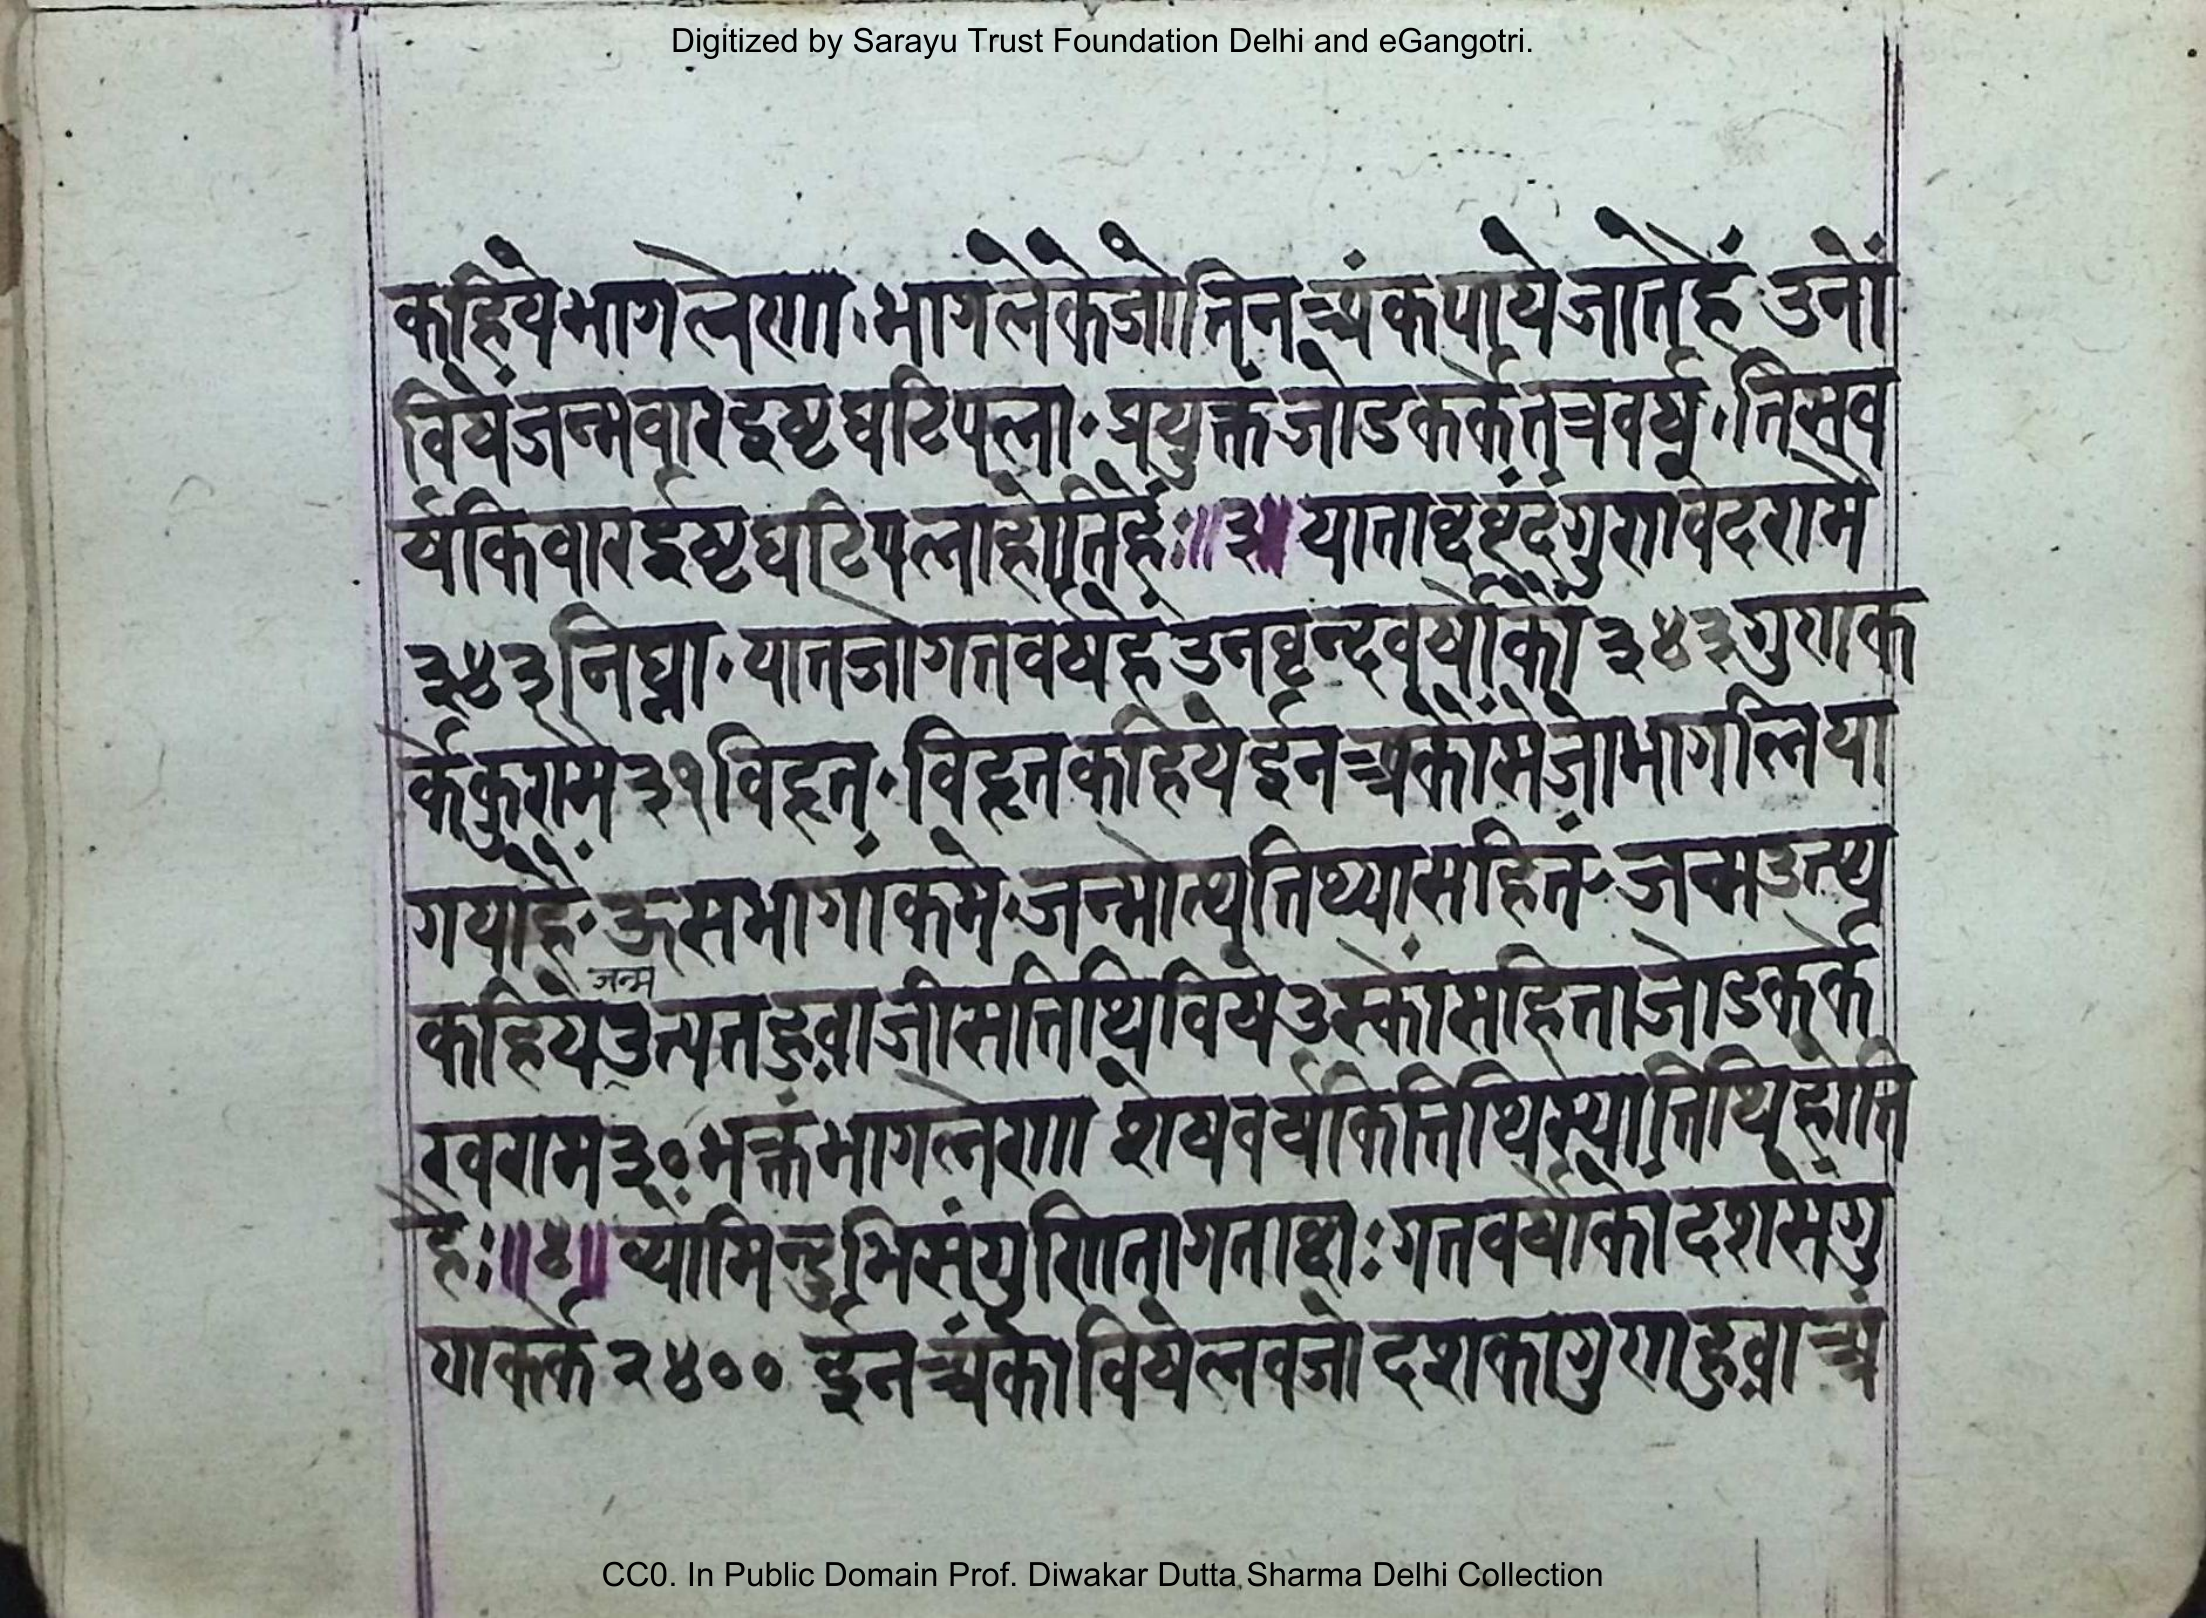 Digitized by Sarayu Trust Foundation Delhi and eGangotri.
कहिये भागलेणा · भागलेकेजो तिन अंक पाये जातेहैं उनों
विषें जन्मवार इष्टघटिपला · प्रयुक्तं जोडकर्के तत्रवर्ष · तिसव
र्षकि वार ईष्टघटिपलाहोतिहैं ः॥३॥ याताब्दवृंदं गुणवेदरामै
३४३ निघ्ना · यात जो गतवर्षहैं उनवृन्दवर्षोंको ३४३ गुणाक
र्के कुरामै ३१ विहृत · विहृत कहिये ईन अकोंमे जो भागलिया
गयाहै · ऊसभागांकमे · जन्मोत्पतिथ्यासहितं - जन्म उत्प
जन्म
कहिये उत्पत हुवा जीसतिथिविषे उस्कों सहिता जोडकर्के
खराम ३० भक्तं भागलेणा शेषवर्षकितिथिस्यातिथिहोति
है ः॥४॥ व्योमिन्दुभिसंगुणिता गताब्दाः गतवर्षोको दशसेंगु
णाकर्के २४०० ईन अंको विषे लव जो दशकागुणा हुवा अं
CC0. In Public Domain Prof. Diwakar Dutta Sharma Delhi Collection